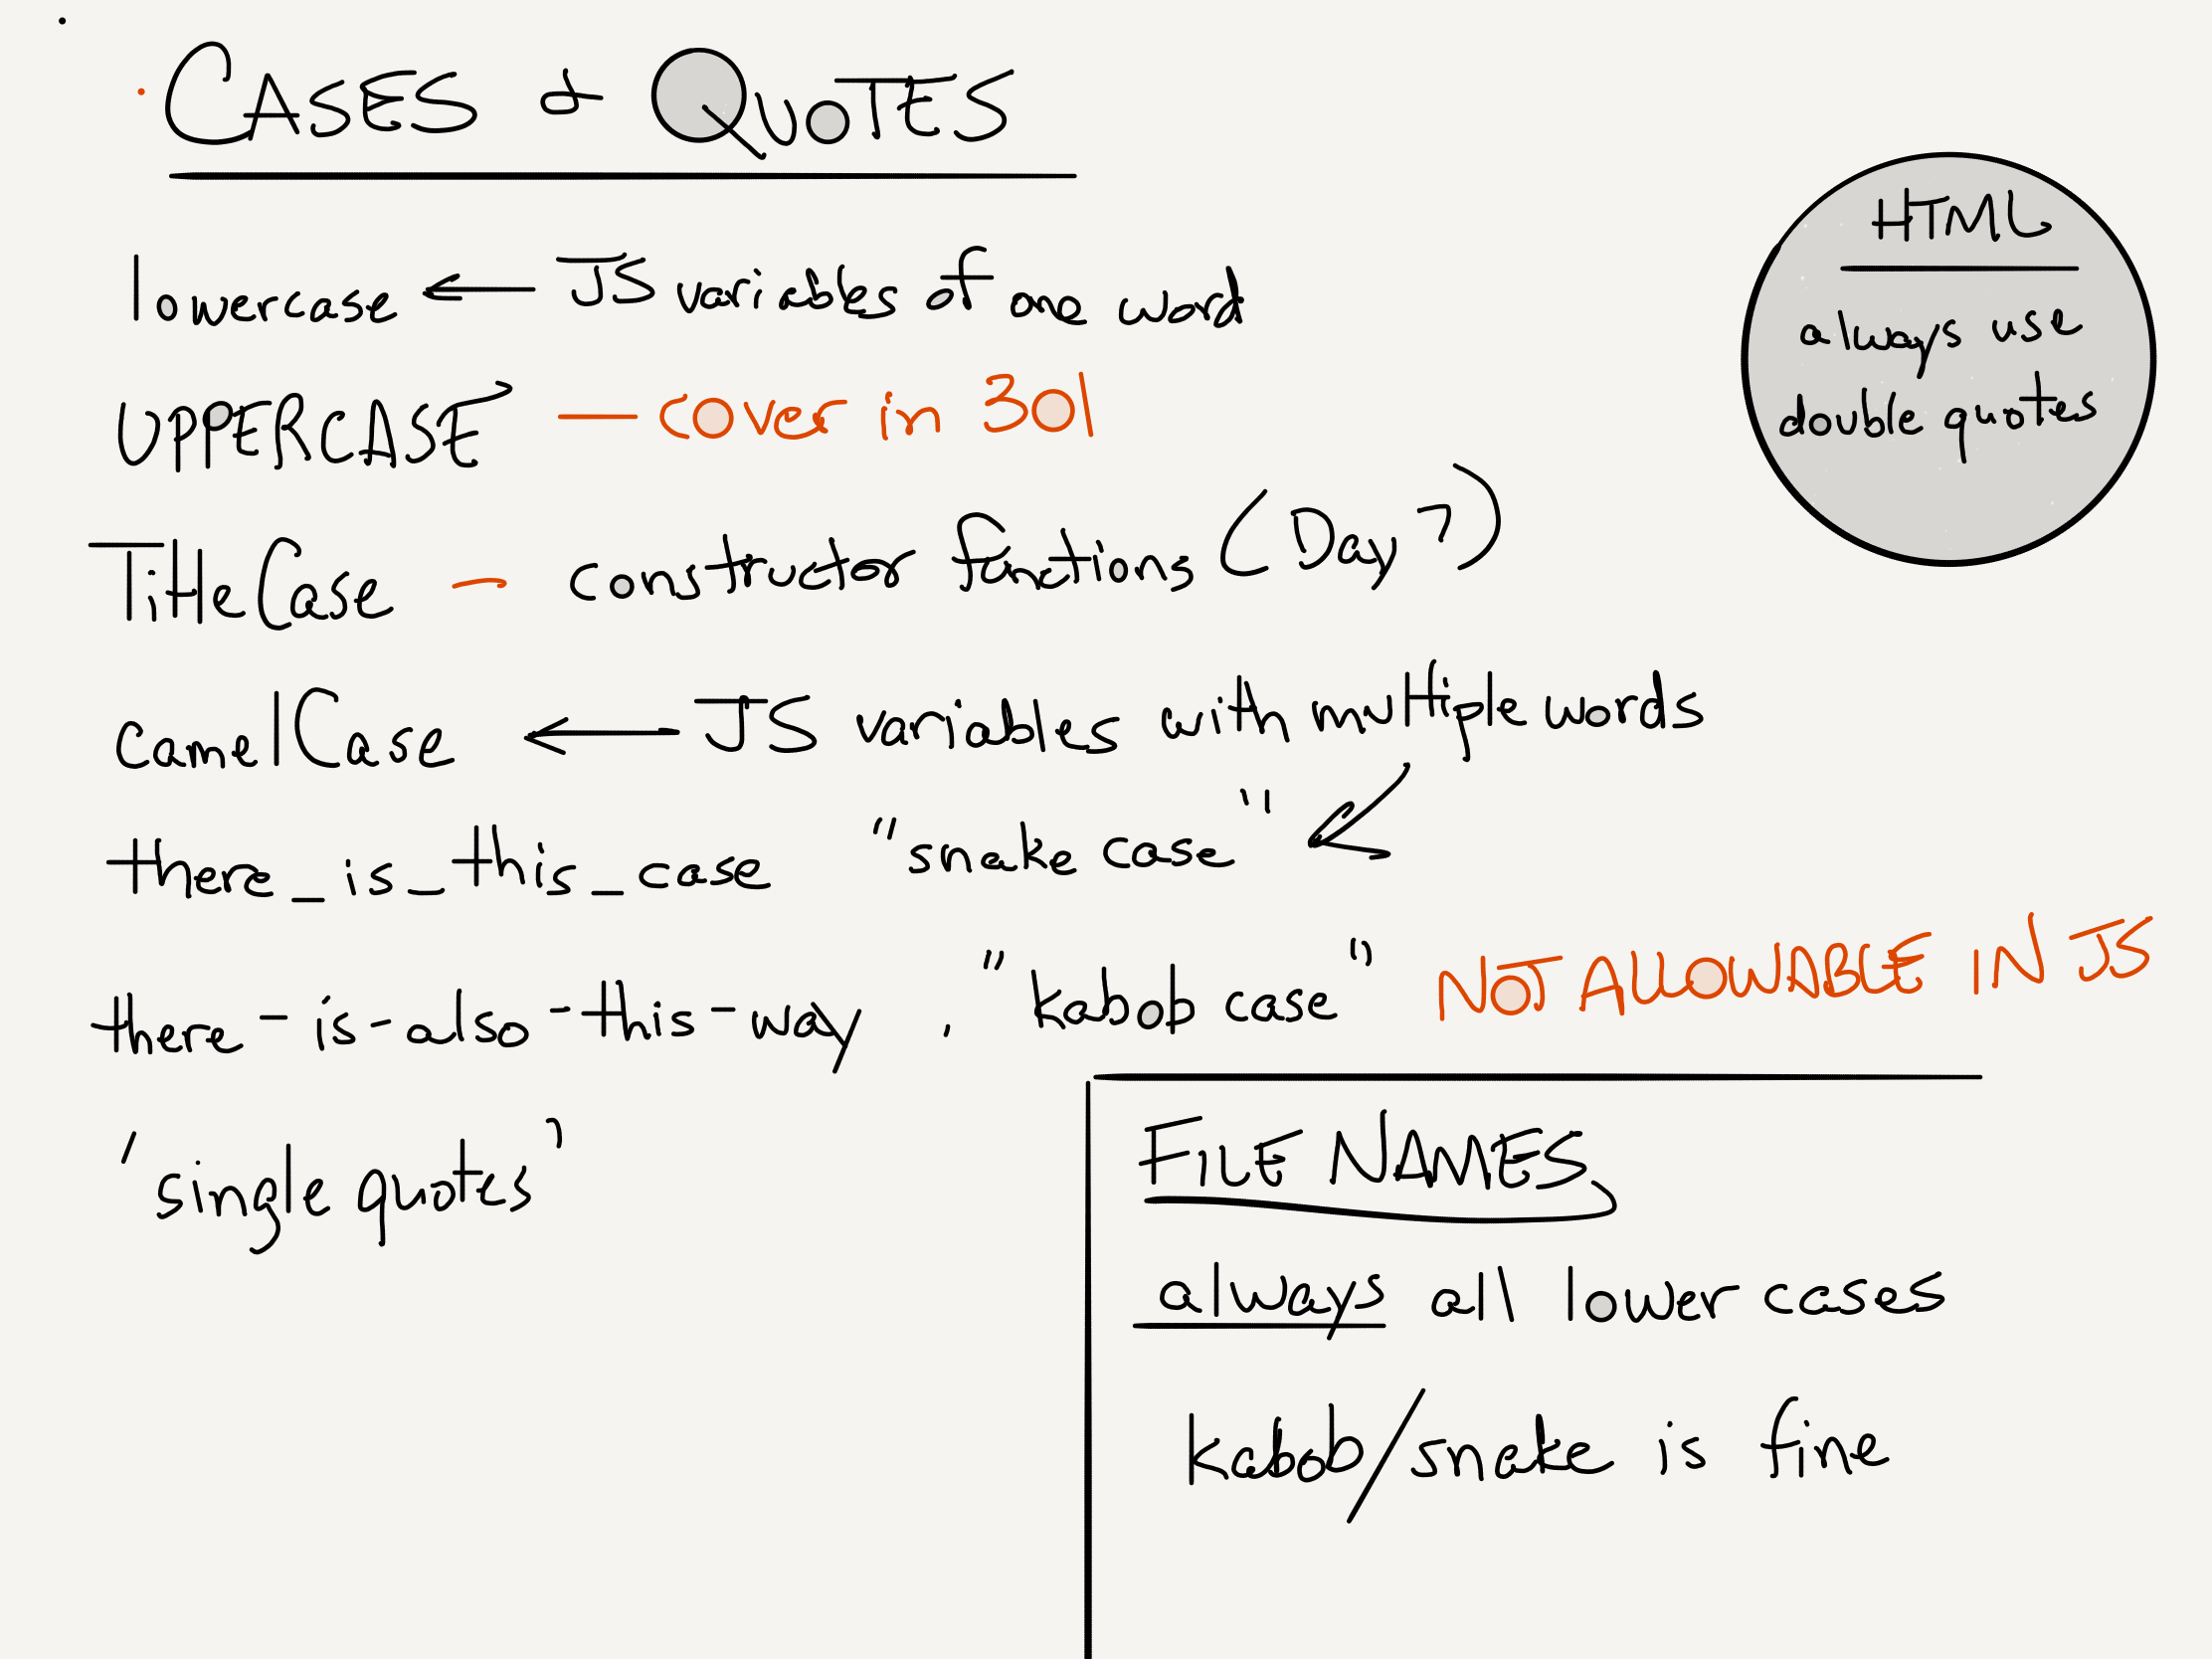 CASES & QUOTES
lowercase ← JS variables of one word
UPPERCASE — cover in 301
TitleCase - constructor functions (Day 7)
camelCase ← JS variables with multiple words
there_is_this_case "snake case" ↙
there-is-also-this-way . "kabob case" NOT ALLOWABLE IN JS
'single quotes'
HTML
always use
double quotes
FILE NAMES
always all lower cases
kabob/snake is fine